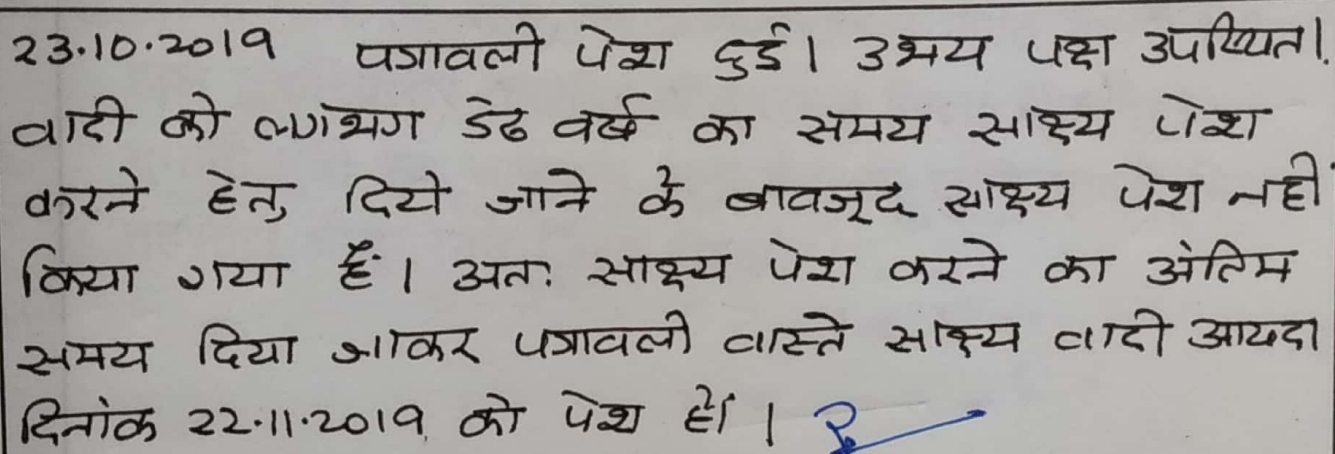 23.10.2019 पत्रावली पेश हुई। उभय पक्ष उपस्थित।
वादी को लगभग डेढ वर्ष का समय साक्ष्य पेश
करने हेतु दिये जाने के बावजूद साक्ष्य पेश नहीं
किया गया हैं। अतः साक्ष्य पेश करने का अंतिम
समय दिया जाकर पत्रावली वास्ते साक्ष्य वादी आयदा
दिनांक 22.11.2019 को पेश हों।